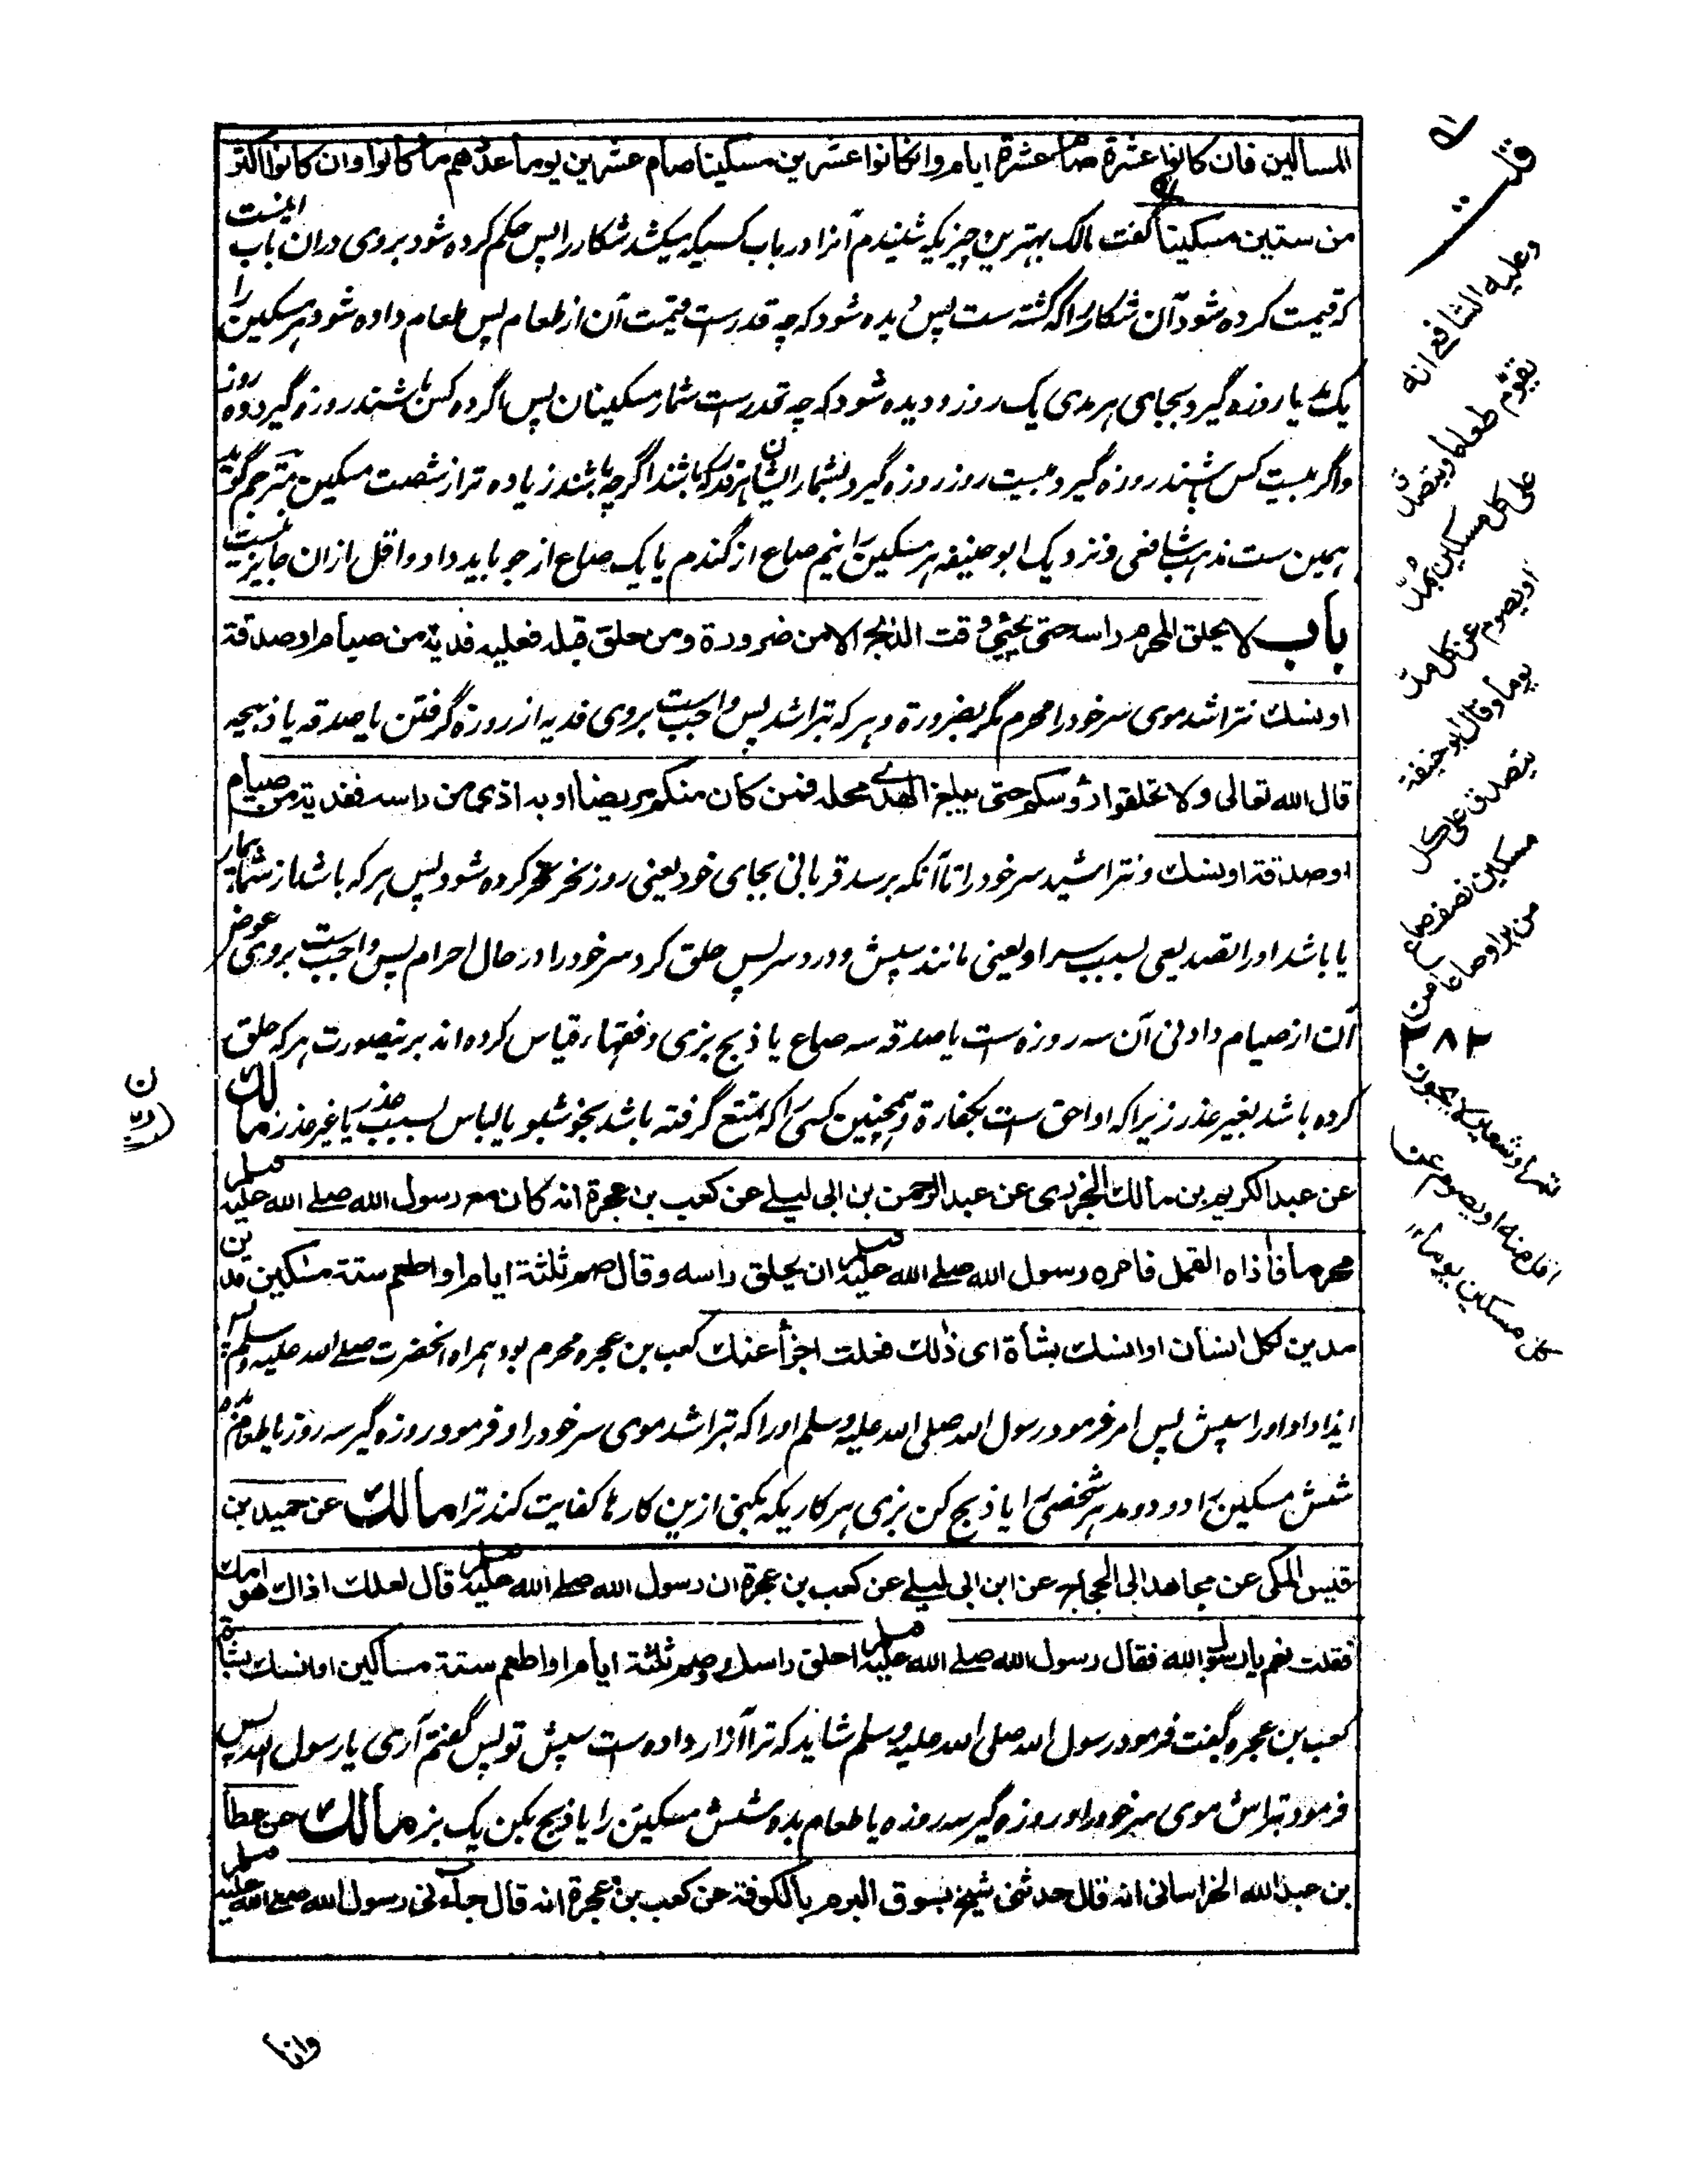 المساكين فان كانوا عشرة صام عشرة ايام وانكانوا عشرين مسكينا صام عشرين يوما عددهم ما كانوا وان كانوا اكثر
من ستين مسكينا گفت مالك بهترين چيزيكه شنيدم آنرا در باب كسيكه بكشد شكار را پس حكم كرده شود بروى دران باب اينست
كه قيمت كرده شود آن شكار را كه كشته ست پس ديده شود كه چه قدرست قيمت آن از طعام پس طعام داده شود هر مسكين را
يك مد يا روزه گيرد بجاى هر مدى يك روز و ديده شود كه چه قدرست شمار مسكينان پس اگر ده كس باشند روزه گيرد ده روز
واگر بيست كس باشند روزه گيرد بيست روز روزه گيرد بشمار ايشان هر قدر كه باشند اگرچه باشند زياده تر از شصت مسكين مترجم گويد
همين ست مذهب شافعى و نزديك ابوحنيفه هر مسكين را نيم صاع از گندم يا يك صاع از جو بايد داد و اقل ازان جايز نيست
باب لا يحلق المحرم راسه حتى يجئ وقت الذبح الا من ضرورة ومن حلق قبله فعليه فدية من صيام اوصدقة
اونسك نتراشد موى سر خود را محرم مگر بضرورة و هر كه بتراشد پس واجب ست بروى فديه از روزه گرفتن يا صدقه يا ذبيحه
قال الله تعالى ولا تحلقوا رؤسكم حتى يبلغ الهدے محله فمن كان منكم مريضا او به اذى من راسه ففدية من صيام
اوصدقة اونسك و نتراشيد سر خود را تا آنكه برسد قربانى بجاى خود يعنى روز نحر نحر كرده شود پس هر كه باشد از شما بيمار
يا باشد او را تصديعى بسبب سر او يعنى مانند سپش و درد سر پس حلق كرد سر خود را در حال احرام پس واجب ست بروى عوض
آن از صيام و ادنى آن سه روزه ست يا صدقه سه صاع يا ذبح بزى و فقها، قياس كرده اند برينصورت هر كه حلق
كرده باشد بغير عذر زيرا كه او احق ست بكفارة و همچنين كسى را كه تمتع گرفته باشد بخوشبو يا لباس بسبب عذر يا غير عذر مالك
عن عبد الكريم بن مالك الجزرى عن عبد الرحمن بن ابى ليلے عن كعب بن عجرة انه كان مع رسول الله صلے الله عليه وسلم
محرما فاذاه القمل فامره رسول الله صلے الله عليه وسلم ان يحلق راسه وقال صم ثلثة ايام او اطعم ستة مسكين مدين
مدين لكل انسان او انسك بشاة اى ذلك فعلت اجزأ عنك كعب بن عجره محرم بود همراه آنحضرت صلے الله عليه وسلم پس
ايذا داد او را سپش پس امر فرمود رسول الله صلى الله عليه وسلم او را كه بتراشد موى سر خود را و فرمود روزه گير سه روز يا طعام بده
شش مسكين را دو دو مد هر شخصى را يا ذبح كن بزى هر كاريكه بكنى ازين كارها كفايت كند ترا مالك عن حميد بن
قيس المكى عن مجاهد ابى الحجاج عن ابن ابى ليلے عن كعب بن عجرة ان رسول الله صلے الله عليه وسلم قال لعلك اذاك هوامك
فقلت نعم يا رسول الله فقال رسول الله صلے الله عليه وسلم احلق راسك وصم ثلثة ايام او اطعم ستة مساكين او انسك بشاة
كعب بن عجره گفت فرمود رسول الله صلى الله عليه وسلم شايد كه ترا آزار داده ست سپش تو پس گفتم آرى يا رسول الله پس
فرمود بتراش موى سر خود را و روزه گير سه روزه يا طعام بده شش مسكين را يا ذبح بكن يك بز مالك عن عطا
بن عبد الله الخراسانى انه قال حدثنى شيخ بسوق البرم بالكوفة عن كعب بن عجرة انه قال جاءنى رسول الله صلے الله عليه وسلم
قلت
وعليه الشافعے انه
يقوم طعاما ويتصدق
على كل مسكين بمد
او يصوم عن كل مد
يوما وقال ابو حنيفة
يتصدق على كل
مسكين نصف صاع
من بر او صاعا من
٢٨٢
تمر او شعير لا يجوز
اقل منه او يصوم عن
كل مسكين يوما
وانا